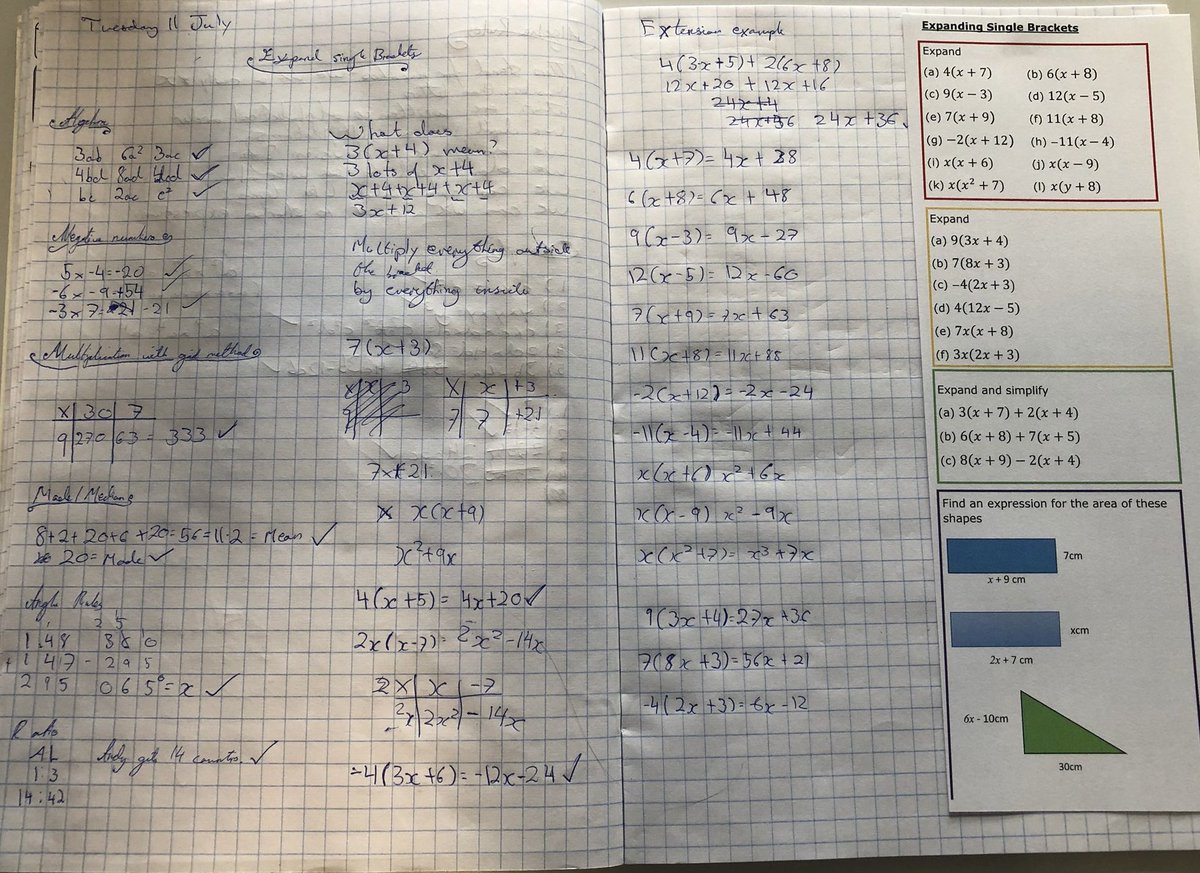 Tuesday 11 July
Expand single Brackets
Algebra
3ab 6a² 3ac ✓
4bd 8ad 4cd ✓
bc 2ac c² ✓
Negative numbers
5 x -4 = -20 ✓
-6 x -9 = +54 ✓
-3 x 7 = -21 ✓
Multiplication with grid method
x 30 7
9 270 63 = 333 ✓
Mode/Median
8+2+20+6+20=56=11.2 = Mean ✓
20 = Mode ✓
Angle Rules
2 5
148 360
+ 147 - 295
295 065° = x ✓
Ratio
A L Andy gets 14 counters. ✓
1:3
14:42
What does
3(x+4) mean?
3 lots of x+4
x+4+x+4+x+4
3x+12
Multiply everything outside
the bracket
by everything inside
7(x+3)
x x 3
x x +3
7 7 +21
7x+21
x(x+9)
x²+9x
4(x+5) = 4x+20 ✓
2x(x-7) = 2x²-14x
x x -7
2x 2x² -14x
-4(3x+6) = -12x-24 ✓
Extension example
4(3x+5)+2(6x+8)
12x+20 + 12x+16
24x+4
24x+36 24x+36 ✓
4(x+7) = 4x + 28
6(x+8) = 6x + 48
9(x-3) = 9x - 27
12(x-5) = 12x - 60
7(x+9) = 7x + 63
11(x+8) = 11x + 88
-2(x+12) = -2x - 24
-11(x-4) = -11x + 44
x(x+6) x²+6x
x(x-9) x²-9x
x(x²+7) = x³+7x
9(3x+4) = 27x+36
7(8x+3) = 56x+21
-4(2x+3) = 6x-12
Expanding Single Brackets
Expand
(a) 4(x + 7) (b) 6(x + 8)
(c) 9(x − 3) (d) 12(x − 5)
(e) 7(x + 9) (f) 11(x + 8)
(g) −2(x + 12) (h) −11(x − 4)
(i) x(x + 6) (j) x(x − 9)
(k) x(x² + 7) (l) x(y + 8)
Expand
(a) 9(3x + 4)
(b) 7(8x + 3)
(c) −4(2x + 3)
(d) 4(12x − 5)
(e) 7x(x + 8)
(f) 3x(2x + 3)
Expand and simplify
(a) 3(x + 7) + 2(x + 4)
(b) 6(x + 8) + 7(x + 5)
(c) 8(x + 9) − 2(x + 4)
Find an expression for the area of these
shapes
7cm
x + 9 cm
xcm
2x + 7 cm
6x - 10cm
30cm